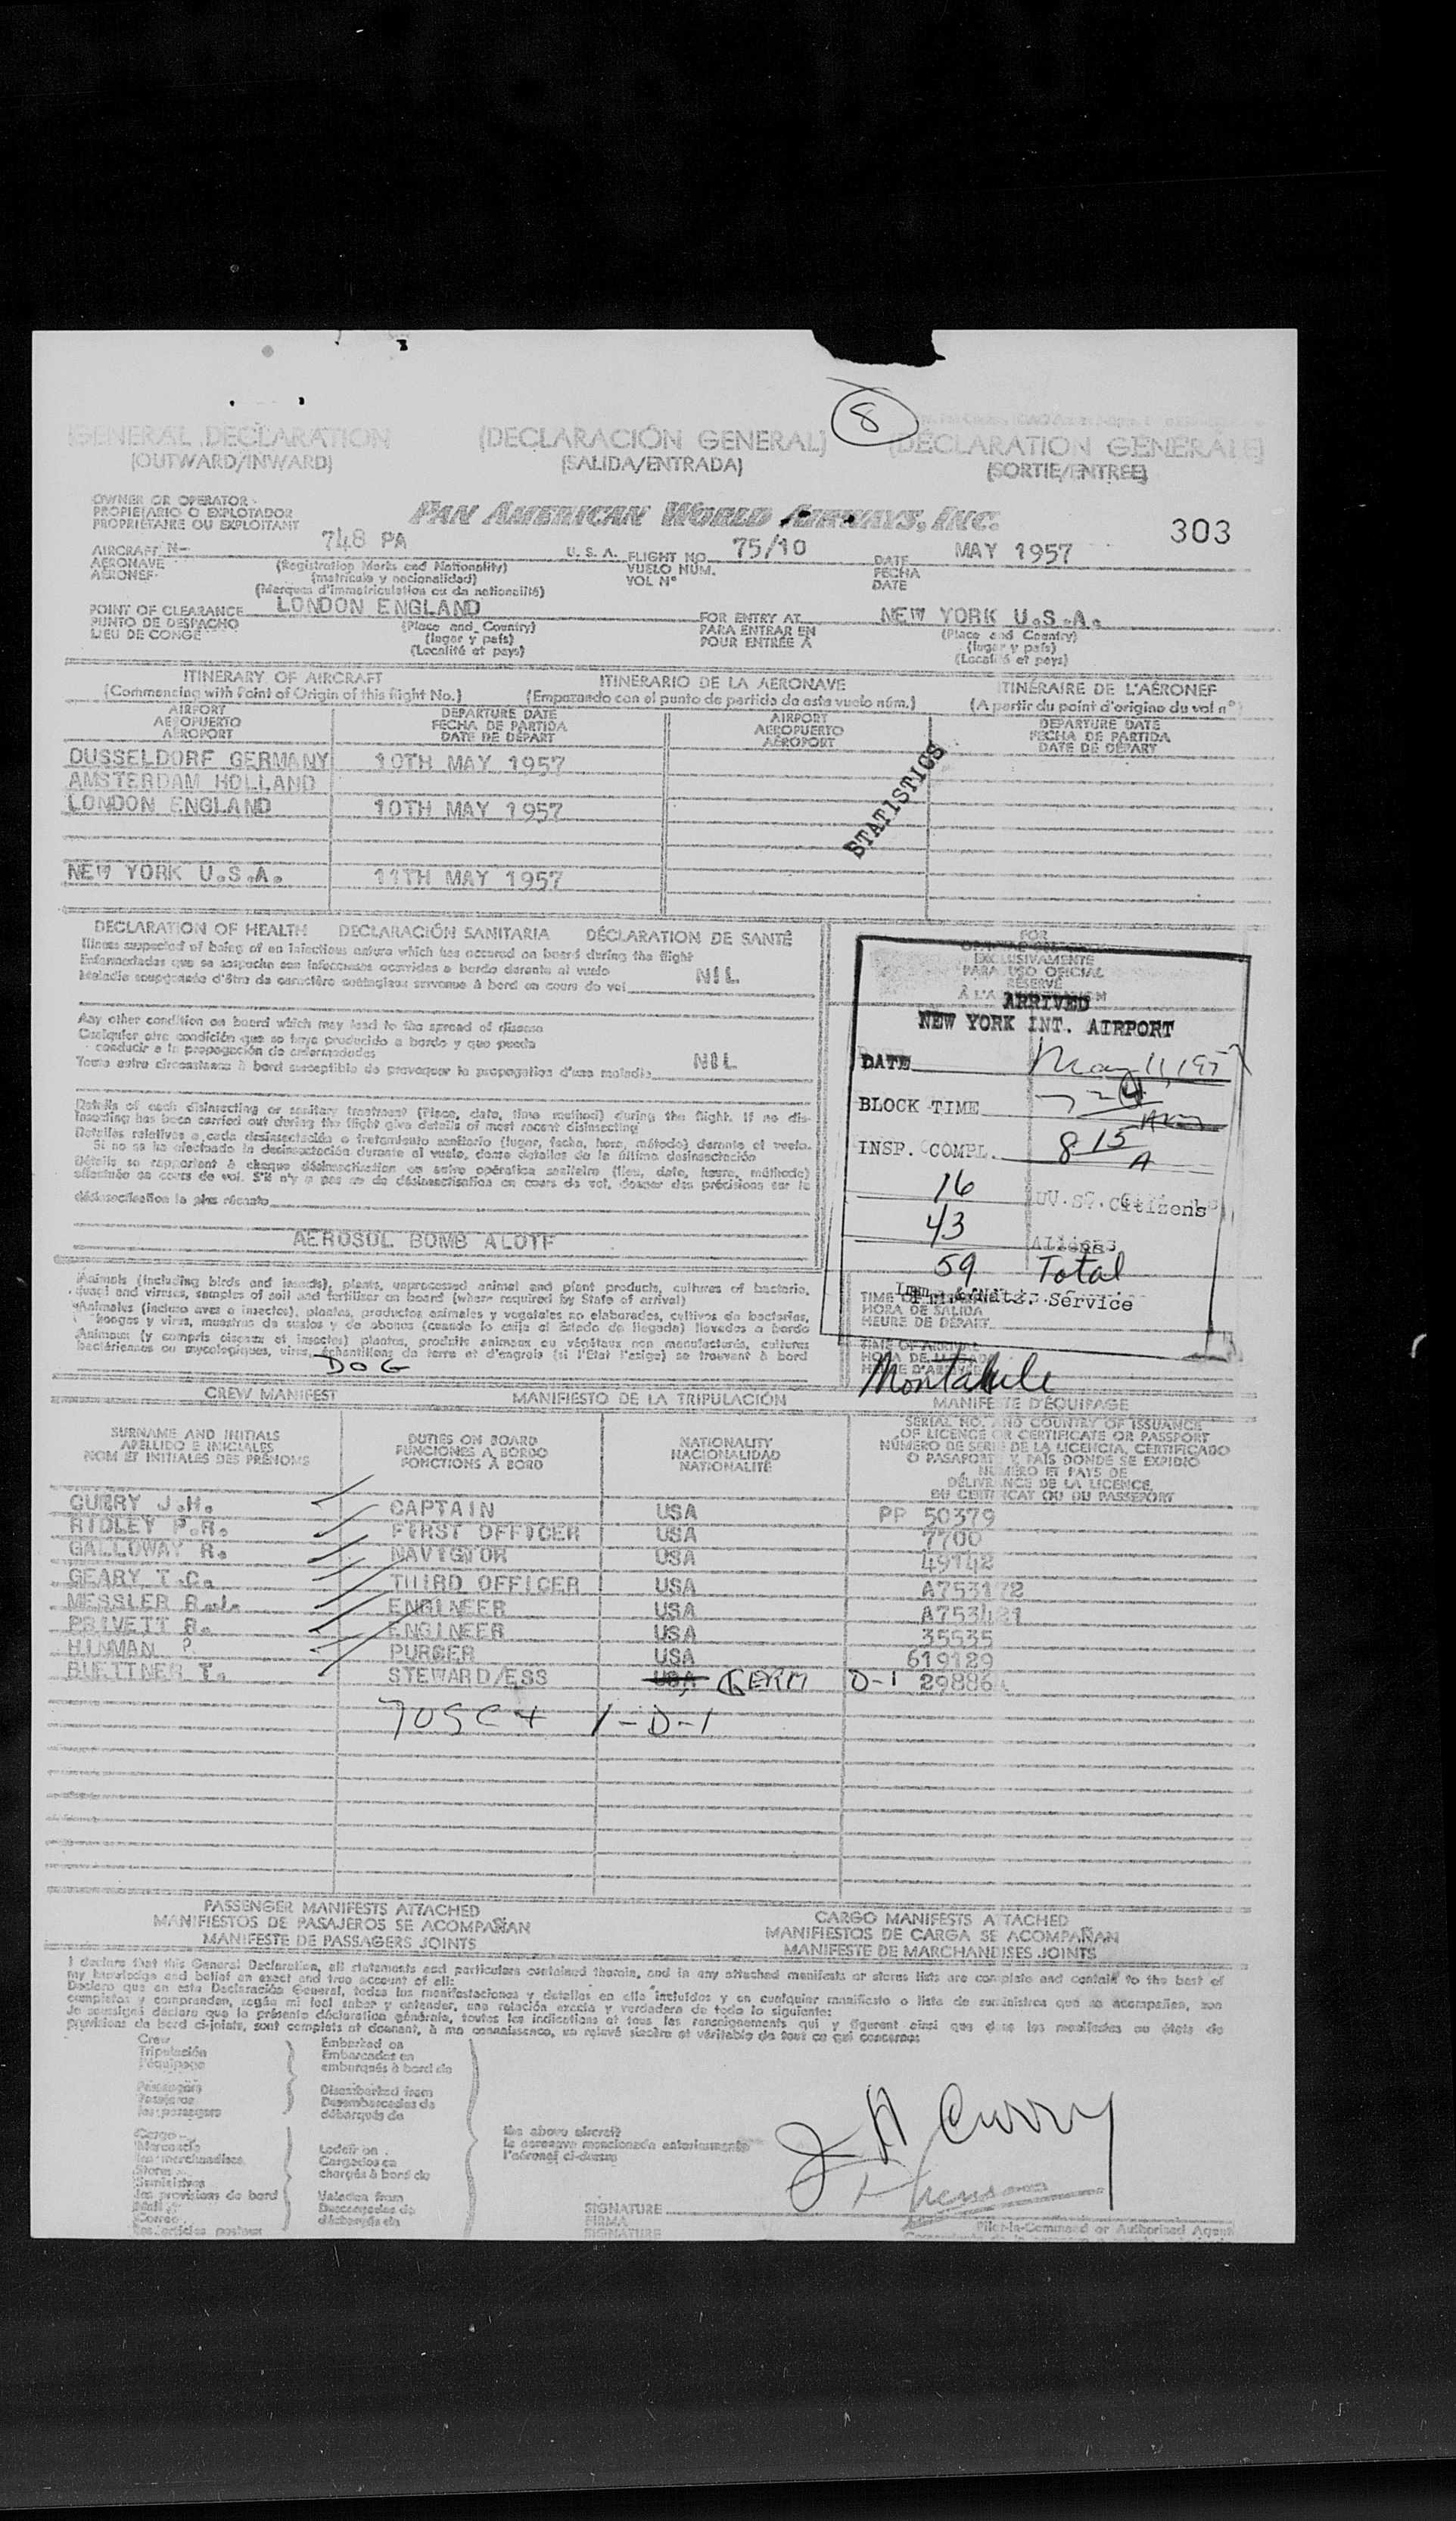 8
GENERAL DECLARATION
(OUTWARD/INWARD)
(DECLARACIÓN GENERAL)
(SALIDA/ENTRADA)
(DÉCLARATION GÉNÉRALE)
(SORTIE/ENTRÉE)
OWNER OR OPERATOR
PROPIETARIO O EXPLOTADOR
PROPRIÉTAIRE OU EXPLOITANT
PAN AMERICAN WORLD AIRWAYS, INC.
303
AIRCRAFT N- 748 PA U. S. A. FLIGHT NO. 75/10 DATE MAY 1957
AERONAVE (Registration Marks and Nationality) VUELO NÚM. FECHA
AÉRONEF (matrícula y nacionalidad) VOL Nº DATE
(Marques d'immatriculation ou de nationalité)
POINT OF CLEARANCE LONDON ENGLAND FOR ENTRY AT NEW YORK U.S.A.
PUNTO DE DESPACHO (Place and Country) PARA ENTRAR EN (Place and Country)
LIEU DE CONGÉ (lugar y país) POUR ENTRÉE À (lugar y país)
(Localité et pays) (Localité et pays)
ITINERARY OF AIRCRAFT ITINERARIO DE LA AERONAVE ITINÉRAIRE DE L'AÉRONEF
(Commencing with Point of Origin of this flight No.) (Empezando con el punto de partida de este vuelo núm.) (A partir du point d'origine du vol nº)
AIRPORT DEPARTURE DATE AIRPORT DEPARTURE DATE
AEROPUERTO FECHA DE PARTIDA AEROPUERTO FECHA DE PARTIDA
AÉROPORT DATE DE DÉPART AÉROPORT DATE DE DÉPART
DUSSELDORF GERMANY 10TH MAY 1957
AMSTERDAM HOLLAND
LONDON ENGLAND 10TH MAY 1957
NEW YORK U.S.A. 11TH MAY 1957
STATISTICS
DECLARATION OF HEALTH DECLARACIÓN SANITARIA DÉCLARATION DE SANTÉ
Illness suspected of being of an infectious nature which has occured on board during the flight
Enfermedades que se sospeche son infecciosas ocurridas a bordo durante el vuelo
Maladie soupçonnée d'être de caractère contagieux survenue à bord en cours de vol NIL
Any other condition on board which may lead to the spread of disease
Cualquier otra condición que se haya producido a bordo y que pueda
conducir a la propagación de enfermedades
Toute autre circonstance à bord susceptible de provoquer la propagation d'une maladie NIL
Details of each disinsecting or sanitary treatment (Place, date, time method) during the flight. If no dis-
insecting has been carried out during the flight give details of most recent disinsecting
Detalles relativos a cada desinsectación o tratamiento sanitario (lugar, fecha, hora, método) durante el vuelo.
Si no se ha efectuado la desinsectación durante el vuelo, dense detalles de la última desinsectación
Détails se rapportant à chaque désinsectisation ou autre opération sanitaire (lieu, date, heure, méthode)
effectuée en cours de vol. S'il n'y a pas eu de désinsectisation en cours de vol, donner des précisions sur la
désinsectisation la plus récente
AEROSOL BOMB ALOTF
FOR
EXCLUSIVAMENTE
PARA USO OFICIAL
RÉSERVÉ
ARRIVED
NEW YORK INT. AIRPORT
DATE May 11, 1957
BLOCK TIME
INSP. COMPL. 8 15 A
16 U. S. Citizens
43 Aliens
59 Total
Imm. & Natz. Service
TIME OF
HORA DE SALIDA
HEURE DE DÉPART
TIME OF ARRIVAL
Animals (including birds and insects), plants, unprocessed animal and plant products, cultures of bacteria,
fungi and viruses, samples of soil and fertiliser on board (where required by State of arrival)
Animales (incluso aves e insectos), plantas, productos animales y vegetales no elaborados, cultivos de bacterias,
hongos y virus, muestras de suelos y de abonos (cuando lo exija el Estado de llegada) llevados a bordo
Animaux (y compris oiseaux et insectes) plantes, produits animaux ou végétaux non manufacturés, cultures
bactériennes ou mycologiques, virus, échantillons de terre et d'engrais (si l'État l'exige) se trouvant à bord
DOG
CREW MANIFEST MANIFIESTO DE LA TRIPULACIÓN MANIFESTE D'ÉQUIPAGE
SURNAME AND INITIALS DUTIES ON BOARD NATIONALITY SERIAL NO. AND COUNTRY OF ISSUANCE
APELLIDO E INICIALES FUNCIONES A BORDO NACIONALIDAD OF LICENCE OR CERTIFICATE OR PASSPORT
NOM ET INITIALES DES PRÉNOMS FONCTIONS À BORD NATIONALITÉ NÚMERO DE SERIE DE LA LICENCIA, CERTIFICADO
O PASAPORTE Y PAÍS DONDE SE EXPIDIÓ
NUMÉRO ET PAYS DE
DÉLIVRANCE DE LA LICENCE,
DU CERTIFICAT OU DU PASSEPORT
CURRY J.H. CAPTAIN USA PP 50379
RIDLEY P.R. FIRST OFFICER USA 7700
GALLOWAY R. NAVIGTOR USA 49142
GEARY T.C. THIRD OFFICER USA A753172
MESSLER R.J. ENGINEER USA A753421
PRIVETT R. ENGINEER USA 35535
HINMAN ? PURSER USA 619129
BUETTNER I. STEWARD/ESS USA GERM D-1 29886
7 USC + 1-D-1
PASSENGER MANIFESTS ATTACHED CARGO MANIFESTS ATTACHED
MANIFIESTOS DE PASAJEROS SE ACOMPAÑAN MANIFIESTOS DE CARGA SE ACOMPAÑAN
MANIFESTE DE PASSAGERS JOINTS MANIFESTE DE MARCHANDISES JOINTS
I declare that this General Declaration, all statements and particulars contained therein, and in any attached manifests or stores lists are complete and contain to the best of
my knowledge and belief an exact and true account of all:
Declaro que en esta Declaración General, todas las manifestaciones y detalles en ella incluidos y en cualquier manifiesto o lista de suministros que se acompañen, son
completos y comprenden, según mi leal saber y entender, una relación exacta y verdadera de todo lo siguiente:
Je soussigné déclare que la présente déclaration générale, toutes les indications et tous les renseignements qui y figurent ainsi que dans les manifestes ou états de
provisions de bord ci-joints, sont complets et donnent, à ma connaissance, un relevé sincère et véritable de tout ce qui concerne:
Crew Embarked on
Tripulación Embarcados en
l'équipage embarqués à bord de
Passengers Disembarked from
Pasajeros Desembarcados de
les passagers débarqués de
Cargo
Mercancía the above aircraft
les marchandises la aeronave mencionada anteriormente
Stores Loaded on l'aéronef ci-dessus
Suministros Cargados en
les provisions de bord chargés à bord de
Mail Unladen from
Correo Descargados de
les articles postaux déchargés de
J H Curry
SIGNATURE
FIRMA
SIGNATURE
Pilot-in-Command or Authorised Agent